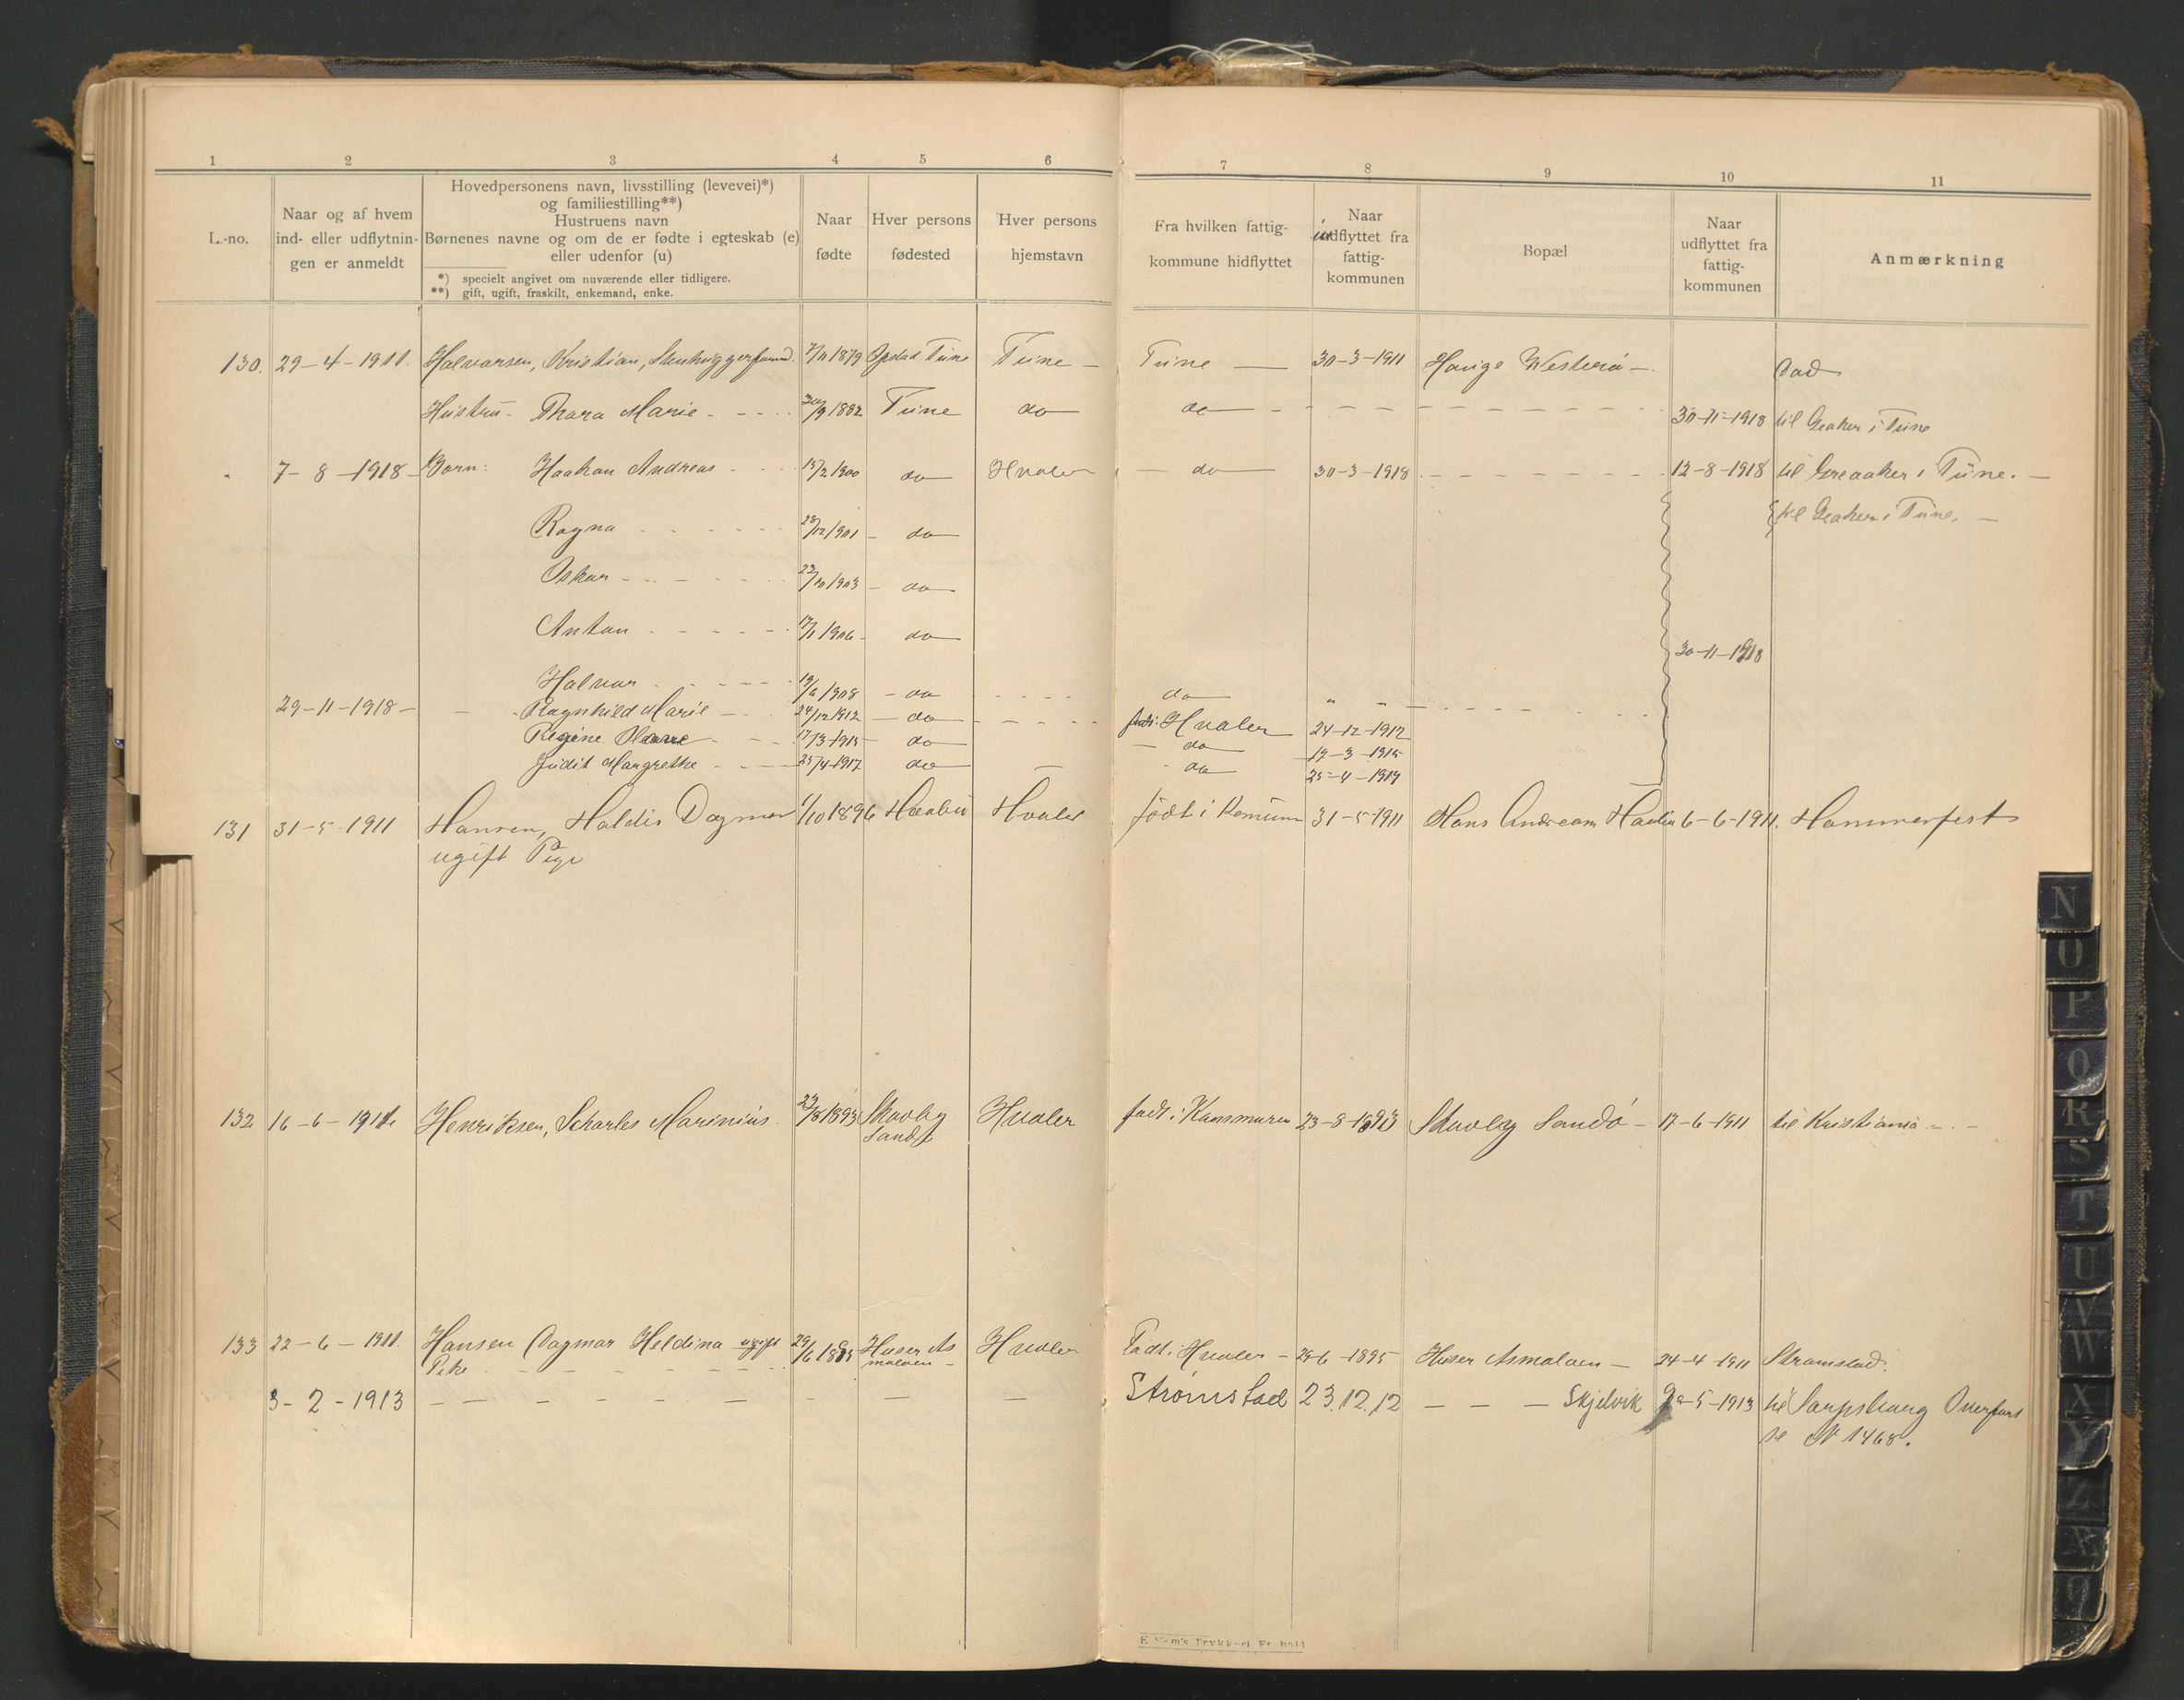 1 2 3 4 5 6 7 8 9 10 11
L.-no.
Naar og af hvem
ind- eller udflytnin-
gen er anmeldt
Hovedpersonens navn, livsstilling (levevei)*)
og familiestilling**)
Hustruens navn
Børnenes navne og om de er fødte i egteskab (e)
eller udenfor (u)
*) specielt angivet om nuværende eller tidligere.
**) gift, ugift, fraskilt, enkemand, enke.
Naar
fødte
Hver persons
fødested
Hver persons
hjemstavn
Fra hvilken fattig-
kommune hidflyttet
Naar
indflyttet fra
fattig-
kommunen
Bopæl
Naar
udflyttet fra
fattig-
kommunen
Anmærkning
130. 29-4-1911. Halvorsen, Kristian, Stenhugger 7/11 1879 Opstad Tune Tune Tune 30-3-1911 Hauge Westerø Død
Hustru Thora Marie 30/9 1882 Tune do do 30-11-1918 til Greaker i Tune
" 7-8-1918 Børn: Haakon Andreas 15/2 1900 do Hvaler do 30-3-1918 12-8-1918 til Greaaker i Tune.
Ragna 28/12 1901 do til Greaker i Tune.
Oskar 22/10 1903 do
Anton 17/1 1906 do
30-11-1918
Halvor 19/6 1908 do do "
29-11-1918 Ragnhild Marie 24/12 1912 do født i Hvaler 24-12-1912
Regine 17/3 1915 do do 17-3-1915
Judit Margrethe 25/4 1917 do do 25-4-1917
131 31-5-1911 Hansen, Haldis Dagmar 1/10 1896 Hvaler født i Komun 31-5-1911 Hans Andreasen 6-6-1911. Hammerfest
ugift Pige
132 16-6-1911. Henriksen, Scharles Marinius 23/8 1893 Skovby Hvaler født i Kommunen 23-8-1893 Skovby Sandø 17-6-1911 til Kristiania
Sandø
133 22-6-1911. Hansen Dagmar Heldina ugift 29/6 1895 Huser As Hvaler Født i Hvaler 29-6-1895 Huser Asmaløen 24-4-1911 Strømstad.
Pike maløen
3-2-1913 Strømstad 23.12.12 Skjelvik -5-1913 til Sarpsborg Overført
se N 1468.
N
O
P
Q
R
S
T
U
V
W
X
Y
Z
Æ
Ø